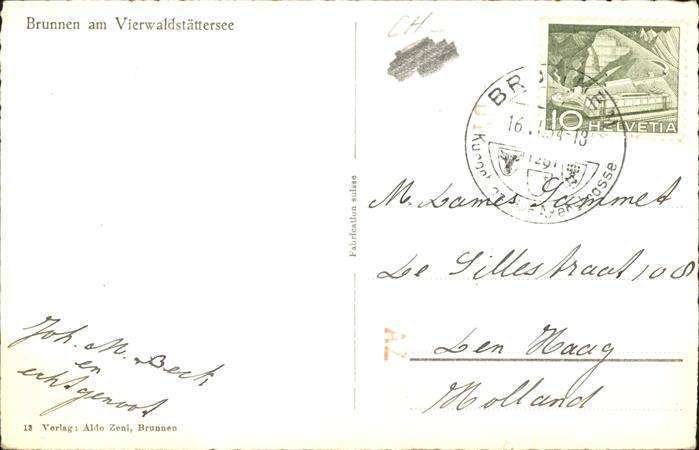 Brunnen am Vierwaldstättersee
CH
BRUNNEN
16.
-18
1291
Axenstrasse
10 HELVETIA
Fabrication suisse
M. Dames Sammet
De Gillestraat 108
Den Haag
Holland
AZ
Joh. M. Beck
en
echtgenoot
13 Verlag: Aldo Zeni, Brunnen